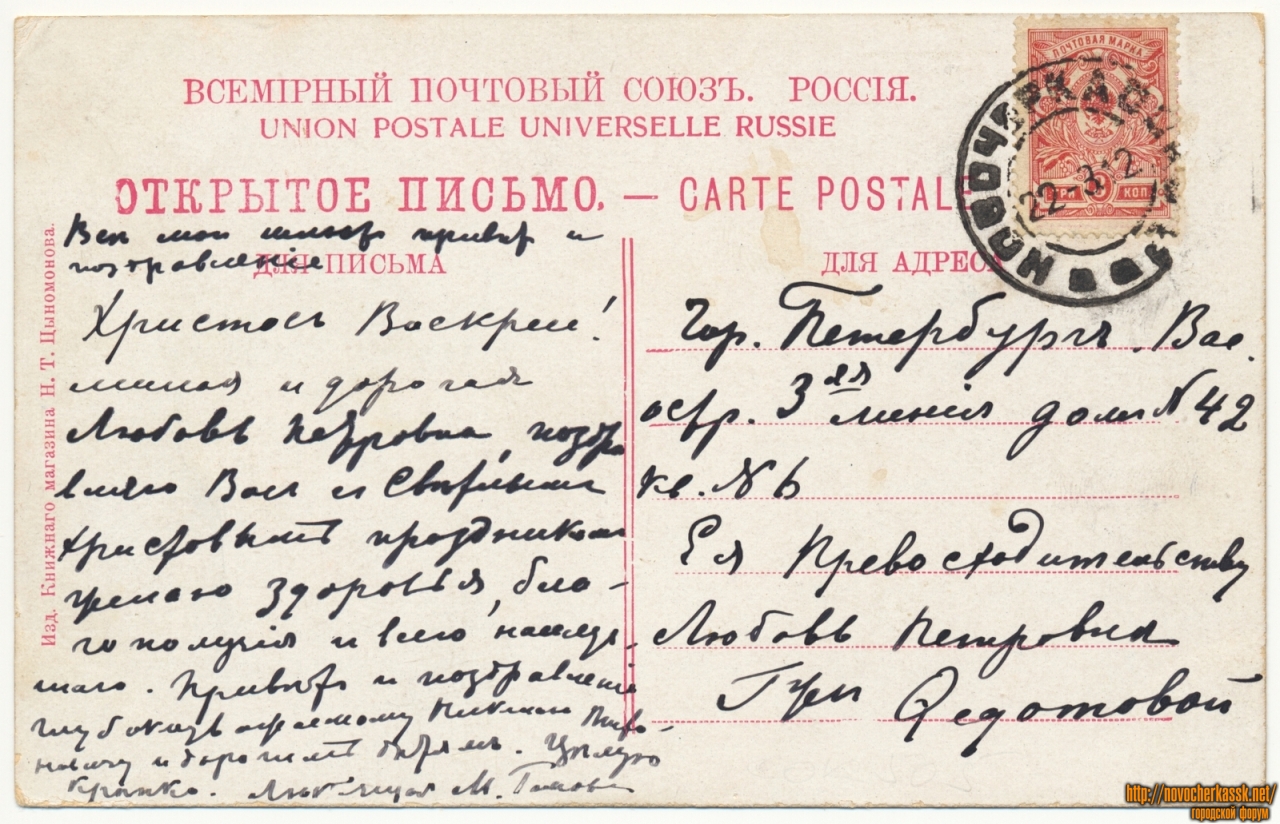 ВСЕМІРНЫЙ ПОЧТОВЫЙ СОЮЗЪ. РОССІЯ.
UNION POSTALE UNIVERSELLE RUSSIE
ОТКРЫТОЕ ПИСЬМО. — CARTE POSTALE
ПОЧТОВАЯ МАРКА
ТРИ 3 КОП
НОВОЧЕРКАССКЪ
22-3-12
Изд. Книжнаго магазина Н. Т. Цыномонова.
Все мои шлютъ приветъ и
поздравленіе
ДЛЯ ПИСЬМА
Христосъ Воскресе!
милая и дорогая
Любовь Петровна, поздра
вляю Васъ и Светлымъ
Христовымъ праздникомъ
желаю здоровья, бла-
гополучія и всего наилуч-
шаго. Приветъ и поздравленіе
глубокоуважаемому Николаю
и дорогимъ детямъ. Целую
крепко. Любящая М.
ДЛЯ АДРЕСА
Гор. Петербургъ. Вас.
остр. 3ья линия домъ N 42
кв. N 6
Ея Превосходительству
Любовь Петровна
Федотовой
http://novocherkassk.net/
городской форум